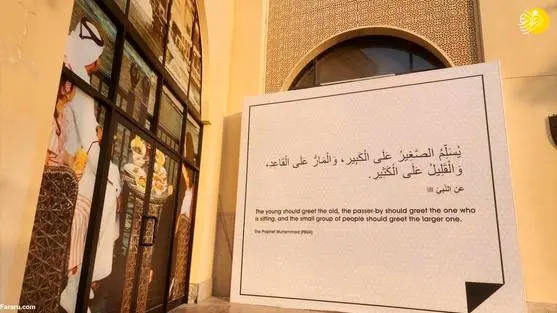 يُسَلِّمُ الصَّغِيرُ عَلَى الْكَبِيرِ، وَالْمَارُّ عَلَى الْقَاعِدِ،
وَالْقَلِيلُ عَلَى الْكَثِيرِ.
عَنِ النَّبِيِّ ﷺ
The young should greet the old, the passer-by should greet the one who
is sitting, and the small group of people should greet the larger one.
The Prophet Muhammad (PBUH)
Fararu.com